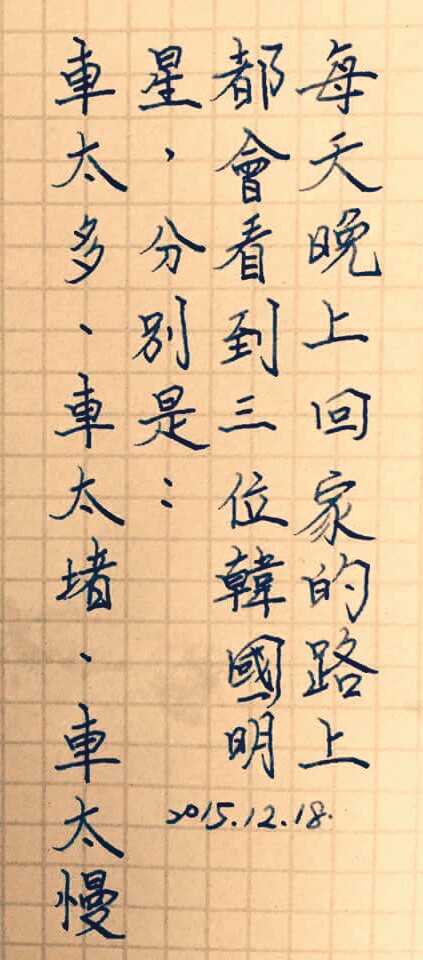 每天晚上回家的路上
都會看到三位韓國明
星，分別是：
車太多、車太堵、車太慢
2015.12.18.